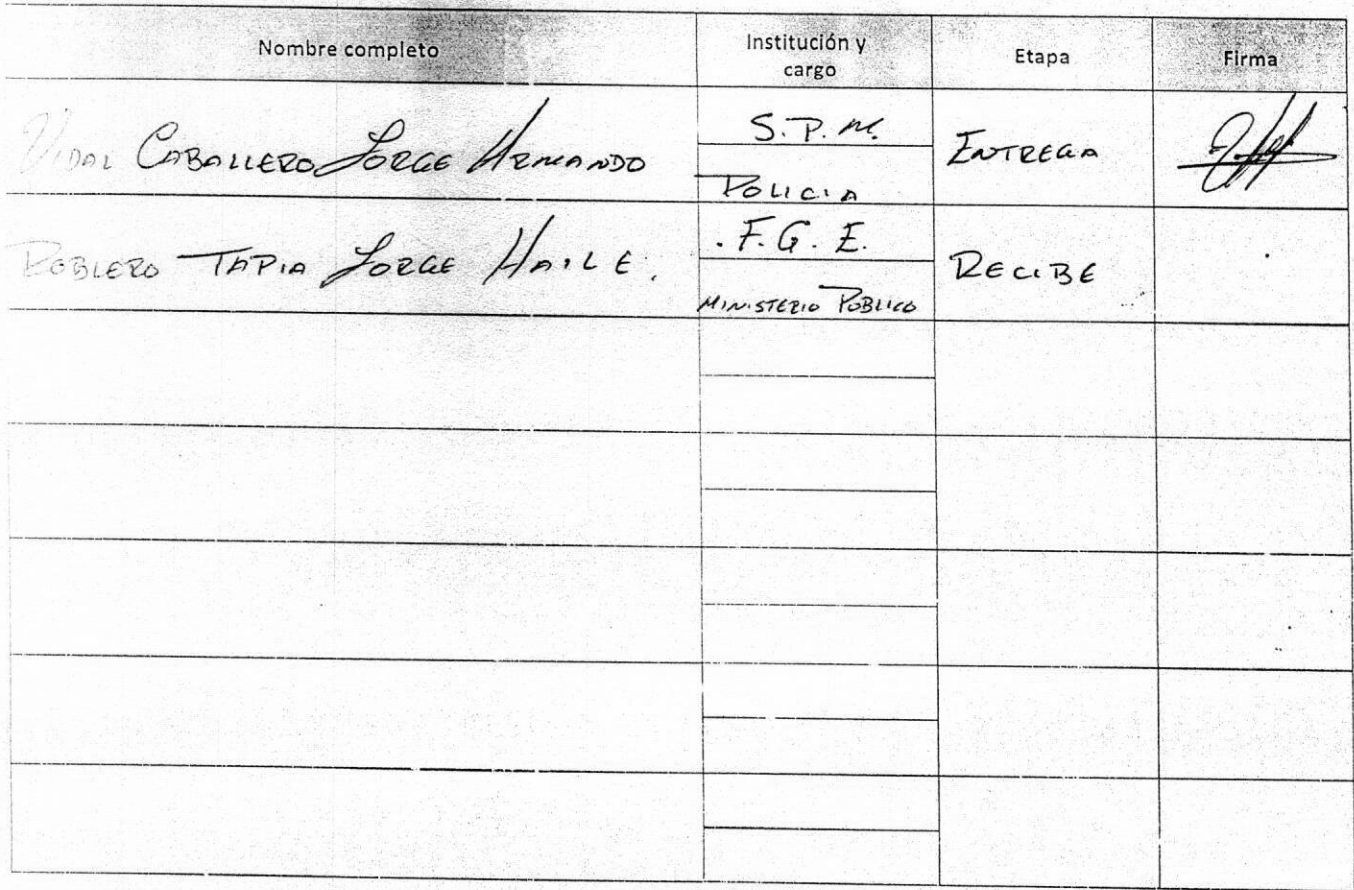 Nombre completo
Institución y
cargo
Etapa
Firma
VIDAL CABALLERO JORGE ARMANDO
S.P.M.
POLICIA
ENTREGA
ROBLERO TAPIA JORGE HAILE.
.F.G.E.
MINISTERIO PUBLICO
RECIBE